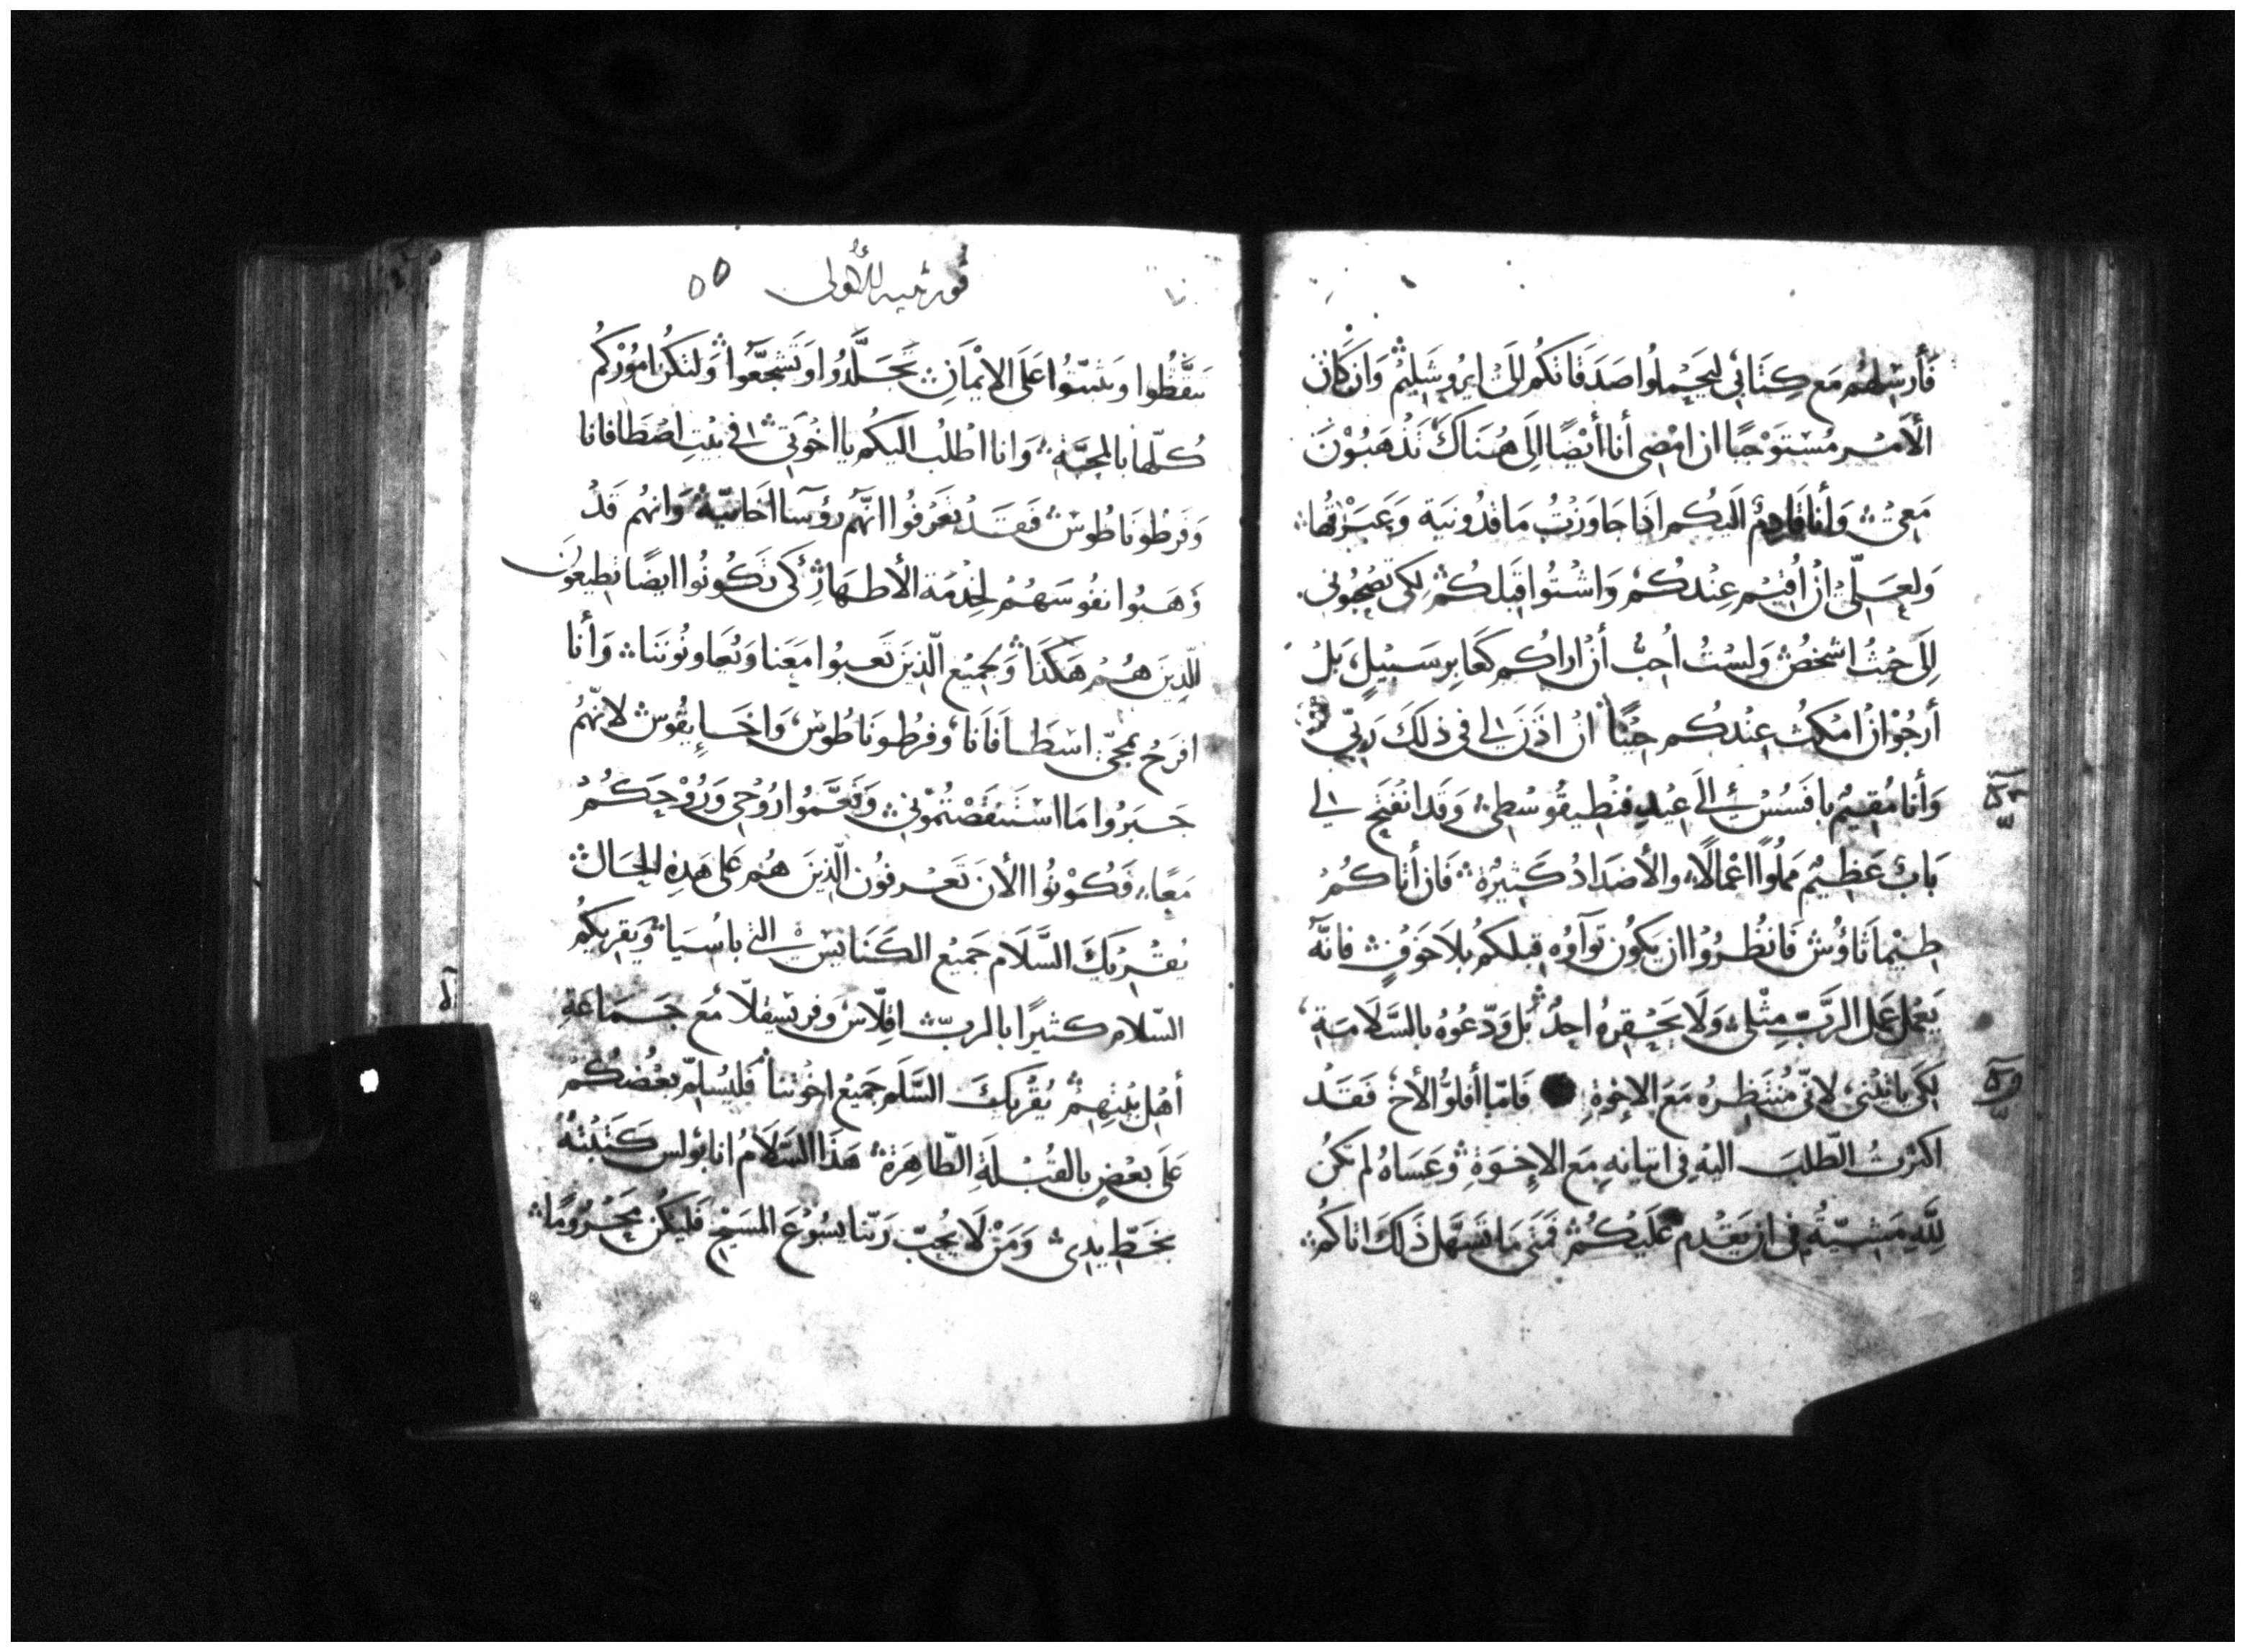 فَأرسِلهُم مَع كِتَابي، ليَحْملُوا صَدَقَاتكُم إلَىْ ايرُوشَلِيمْ وَان كَانَ
الأمْر مُسْتَوْجبًا ان امْضِى أنا أيْضًا الَى هُنَاكَ تَذْهَبُوْنَ
مَعِىْ وَأنا قَادِمٌ الَيكُم اذَا جَاوَزْتُ مَاقدُونيَة وَعَبَرْتُها
وَلعَلّى انْ اُقيْم عِنْدكُمْ وَاشْتُوا قبَلكُمْ لِكَى تصْحَبُونى
إلَى حَيْثُ اشْخصْ وَلسْتُ اُحِبُّ أنْ اراكُم كَعَابِر سَبيْلٍ، بَلْ
أرجُوْ انْ امْكثَ عِنْدكُم حِيْنًا انْ اذَنَ لي فى ذلكَ رَبّي
وَأنا مُقِيمٌ بافَسُسْ الَى عِيْدِ فنْطِيقُوسْطِى وَقَد انفَتَح لي
بَابٌ عَظِيْم مَملُوًّا اعْمالًا، والأضدَادُ كَثِيْرَة فَان أتاكُمْ
طِيْمَاثَاوُسْ فَانْظُرُوْا ان يَكُون ثَوَآوُه قِبلَكُم بلاَ خَوْفٍ فانّهُ
يَعْمَل عَمَل الرَّبّ مِثْلى وَلَا يَحْقِرهُ احدٌ بَل وَدّعُوْهُ بالسَّلَامَةِ،
لِكَى ياتيْنى، لانّى مُنْتَظِرهُ مَعَ الاِخْوَةِ فَامّا أفلوُّ الأخْ فَقَدْ
اكثَرْتُ الطّلبَ اليْه فى اتيانهِ مَع الاِخْوَةِ وَعَسَاهُ لم تكنْ
لِلَّهِ مَشِيّئةٌ فى ان يَقْدِم عَلَيْكُمْ فَمَتَى مَا تَسَهَّل ذَلكَ اتاكُمْ
قورنثيه الأولى ٥٥
تيَقَّظُوا وَتثبّتُوا عَلَى الايْمَانِ تَجَلَّدُوا وَتَشَجَّعُوا وَلتَكُن امُوْرُكُم
كُلّها بالمحَبَّة وَانا اطْلُب اليكُم يا اخْوَتى فى بَيْتِ اصْطَافانا
وَفرطُونَاطُوسْ فَقَدْ تعْرَفُوا انَّهُم رُؤسَآ اخَائيّة وَانهُم قَدْ
وَهَبُوا نفُوسَهُمْ لخِدْمَة الأطهَارْ كَى تَكُونُوا ايضًا تطِيعُوْنَ
الّذِينَ هُمْ هَكذَا وَلجَمِيْع الّذِينَ تَعبُوا مَعَنا وَيُعَاونُونَنا وَأنا
افرَحُ بمَجَىّ اسْطَافَانَا، وَفرْطُونَاطُوس، وَاخَايِقُوسْ لانّهُمْ
جَبَرُوا مَا اسْتَنقَصْتُمُوْنى وَنَعَّمُوا رُوْحِى وَرُوْحَكُمْ
مَعًا، فَكُوْنُوا الأنَ تَعْرفوُن الّذِينَ هُم عَلى هَذِه الحَال
يُقْرِيكَ السَّلَام جَميْع الكَنَايِسْ التى باسِيَا وَيَقرِيكُم
السّلام كثيرًا بالربّ اقلّاسْ وَفرِسْقِلّا مَع جَماعَةِ
أهْل بيْتِهِمْ يُقْريكَ السَّلَم جَمِيْع اخْوَتنا فَليُسَلِّم بَعْضكُم
عَلَى بعْضٍ بالقُبْلَةِ الطّاهِرَة هَذَا السَّلَامُ انا بوُلس كَتَبْتهُ
بخَطّ يدى وَمَنْ لَا يُحِبّ رَبّنا يسُوْعَ المسِيْح فَليَكُن مَحْرُوْمًا